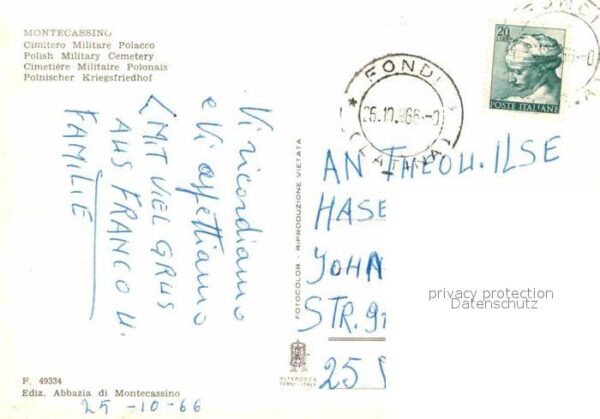 MONTECASSINO
Cimitero Militare Polacco
Polish Military Cemetery
Cimetière Militaire Polonais
Polnischer Kriegsfriedhof
Vi ricordiamo
e Vi aspettiamo
MIT VIEL GRUS
AUS FRANCO U.
FAMILIE
F. 49334
Ediz. Abbazia di Montecassino
25-10-66
FOTOCOLOR - RIPRODUZIONE VIETATA
ALTEROCCA
TERNI - ITALY
20
LIRE
POSTE ITALIANE
FONDI
(LATINA)
AN THEO U. ILSE
HASE
JOHN
STR. 91
25
privacy protection
Datenschutz